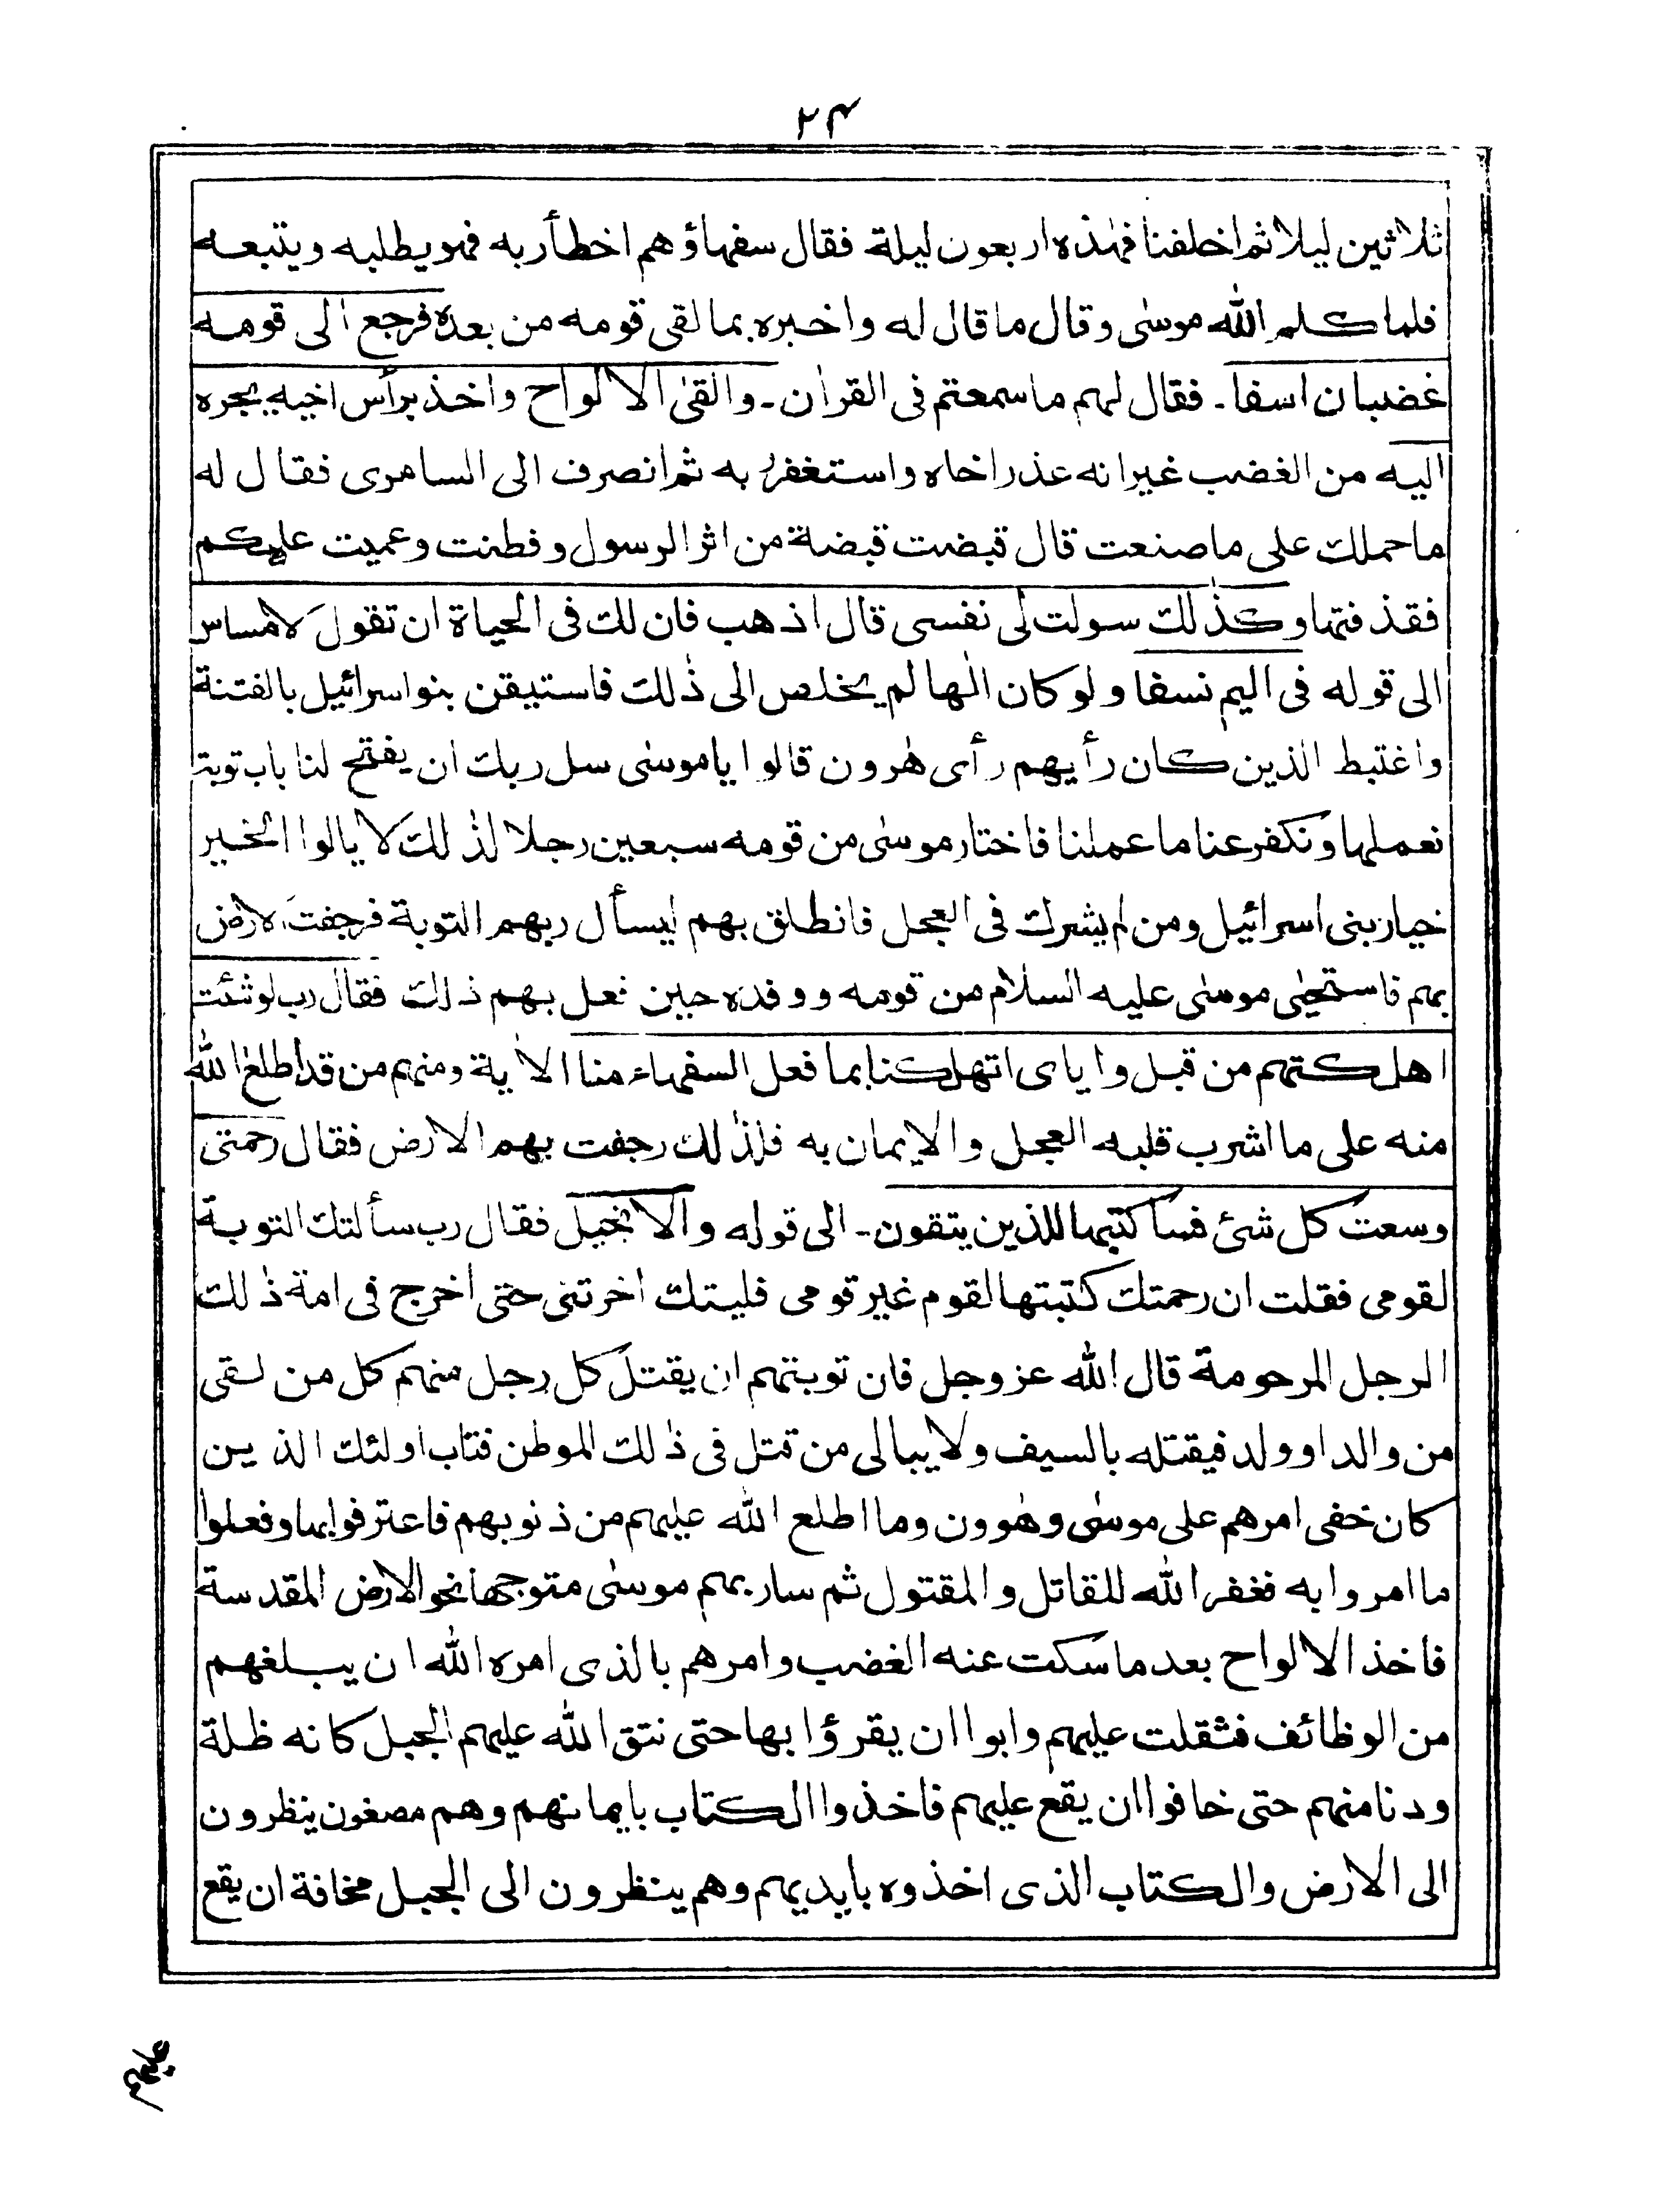 ٢٤
ثلاثين ليلا ثم اخلفنا فهٰذه اربعون ليلة فقال سفهاؤهم اخطأ ربه فهو يطلبه ويتبعه
فلما كلم الله موسٰى وقال ما قال له واخبره بما لقى قومه من بعده فرجع الى قومه
غضبان اسفا ۔ فقال لهم ما سمعتم فى القراٰن ۔ والقى الالواح واخذ برأس اخيه يجره
اليه من الغضب غير انه عذر اخاه واستغفر ربه ثم انصرف الى السامرى فقال له
ما حملك على ما صنعت قال قبضت قبضة من اثر الرسول وفطنت وعميت عليكم
فقذفتها وكذٰلك سولت لى نفسى قال اذهب فان لك فى الحياة ان تقول لا مساس
الى قوله فى اليم نسفا ولو كان الٰها لم يخلص الى ذٰلك فاستيقن بنو اسرائيل بالفتنة
واغتبط الذين كان رأيهم رأى هٰرون قالوا يا موسٰى سل ربك ان يفتح لنا باب توبة
نعملها ونكفر عنا ما عملنا فاختار موسٰى من قومه سبعين رجلا لذٰلك لا يالوا الخير
خيار بنى اسرائيل ومن لم يشرك فى العجل فانطلق بهم ليسأل ربهم التوبة فرجفت الارض
بهم فاستحيٰى موسٰى عليه السلام من قومه ووفده حين فعل بهم ذلك فقال رب لو شئت
اهلكتهم من قبل واياى اتهلكنا بما فعل السفهاء منا الاٰية ومنهم من قد اطلع الله
منه على ما اشرب قلبه العجل والايمان به فلذٰلك رجفت بهم الارض فقال رحمتى
وسعت كل شئ فسأكتبها للذين يتقون ۔ الى قوله والانجيل فقال رب سألتك التوبة
لقومى فقلت ان رحمتك كتبتها لقوم غير قومى فليتك اخرتنى حتى اخرج فى امة ذٰلك
الرجل المرحومة قال الله عز وجل فان توبتهم ان يقتل كل رجل منهم كل من لقى
من والد او ولد فيقتله بالسيف ولا يبالى من قتل فى ذٰلك الموطن فتاب اولئك الذين
كان خفى امرهم على موسٰى وهٰرون وما اطلع الله عليهم من ذنوبهم فاعترفوا بها وفعلوا
ما امروا به فغفر الله للقاتل والمقتول ثم سار بهم موسٰى متوجها نحو الارض المقدسة
فاخذ الالواح بعد ما سكت عنه الغضب وامرهم بالذى امره الله ان يبلغهم
من الوظائف فثقلت عليهم وابوا ان يقرؤا بها حتى نتق الله عليهم الجبل كانه ظلة
ودنا منهم حتى خافوا ان يقع عليهم فاخذوا الكتاب بايمانهم وهم مصغون ينظرون
الى الارض والكتاب الذى اخذوه بايديهم وهم ينظرون الى الجبل مخافة ان يقع
عليهم